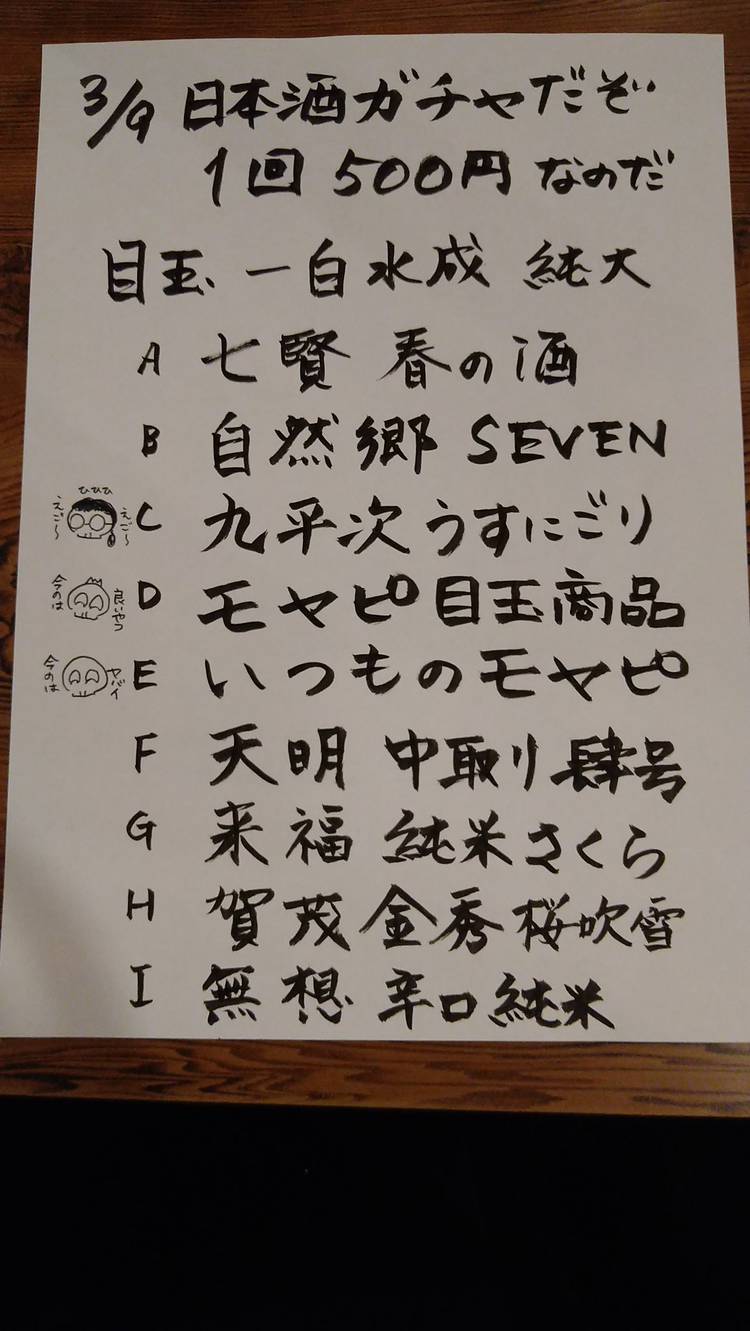 3/9 日本酒ガチャだぞ
1回 500円 なのだ
目玉 一白水成 純大
A 七賢 春の酒
B 自然郷 SEVEN
ひひひ
えご〜 えご〜 C 九平次 うすにごり
今のは 良いやつ D モヤピ 目玉商品
今のは ヤバイ E いつものモヤピ
F 天明 中取り 肆号
G 来福 純米さくら
H 賀茂金秀 桜吹雪
I 無想 辛口純米